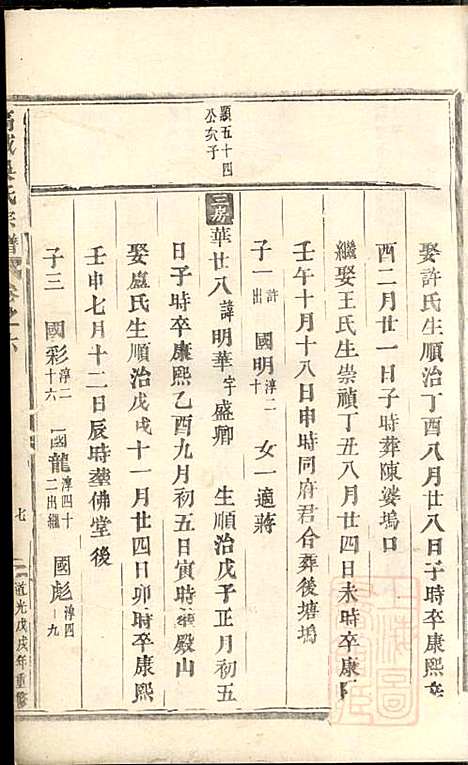 娶許氏生順治丁酉八月廿八日子時卒康熙辛
酉二月廿一日子時葬陳婆塢口
繼娶王氏生崇禎丁丑八月廿四日未時卒康熙
壬午十月十八日申時同府君合葬後塘塢
子一許出 國明淳二十 女一適蔣
顯五十四公次子
三房華廿八諱明華字盛卿 生順治戊子正月初五
日子時卒康熙乙酉九月初五日寅時葬殿山
娶盧氏生順治戊戌十一月廿四日卯時卒康熙
壬申七月十二日辰時葬佛堂後
子三 國彩淳二十六 國龍淳四十二出繼 國彪淳四十九
吳氏宗譜 卷之六 七 道光戊戌年重修